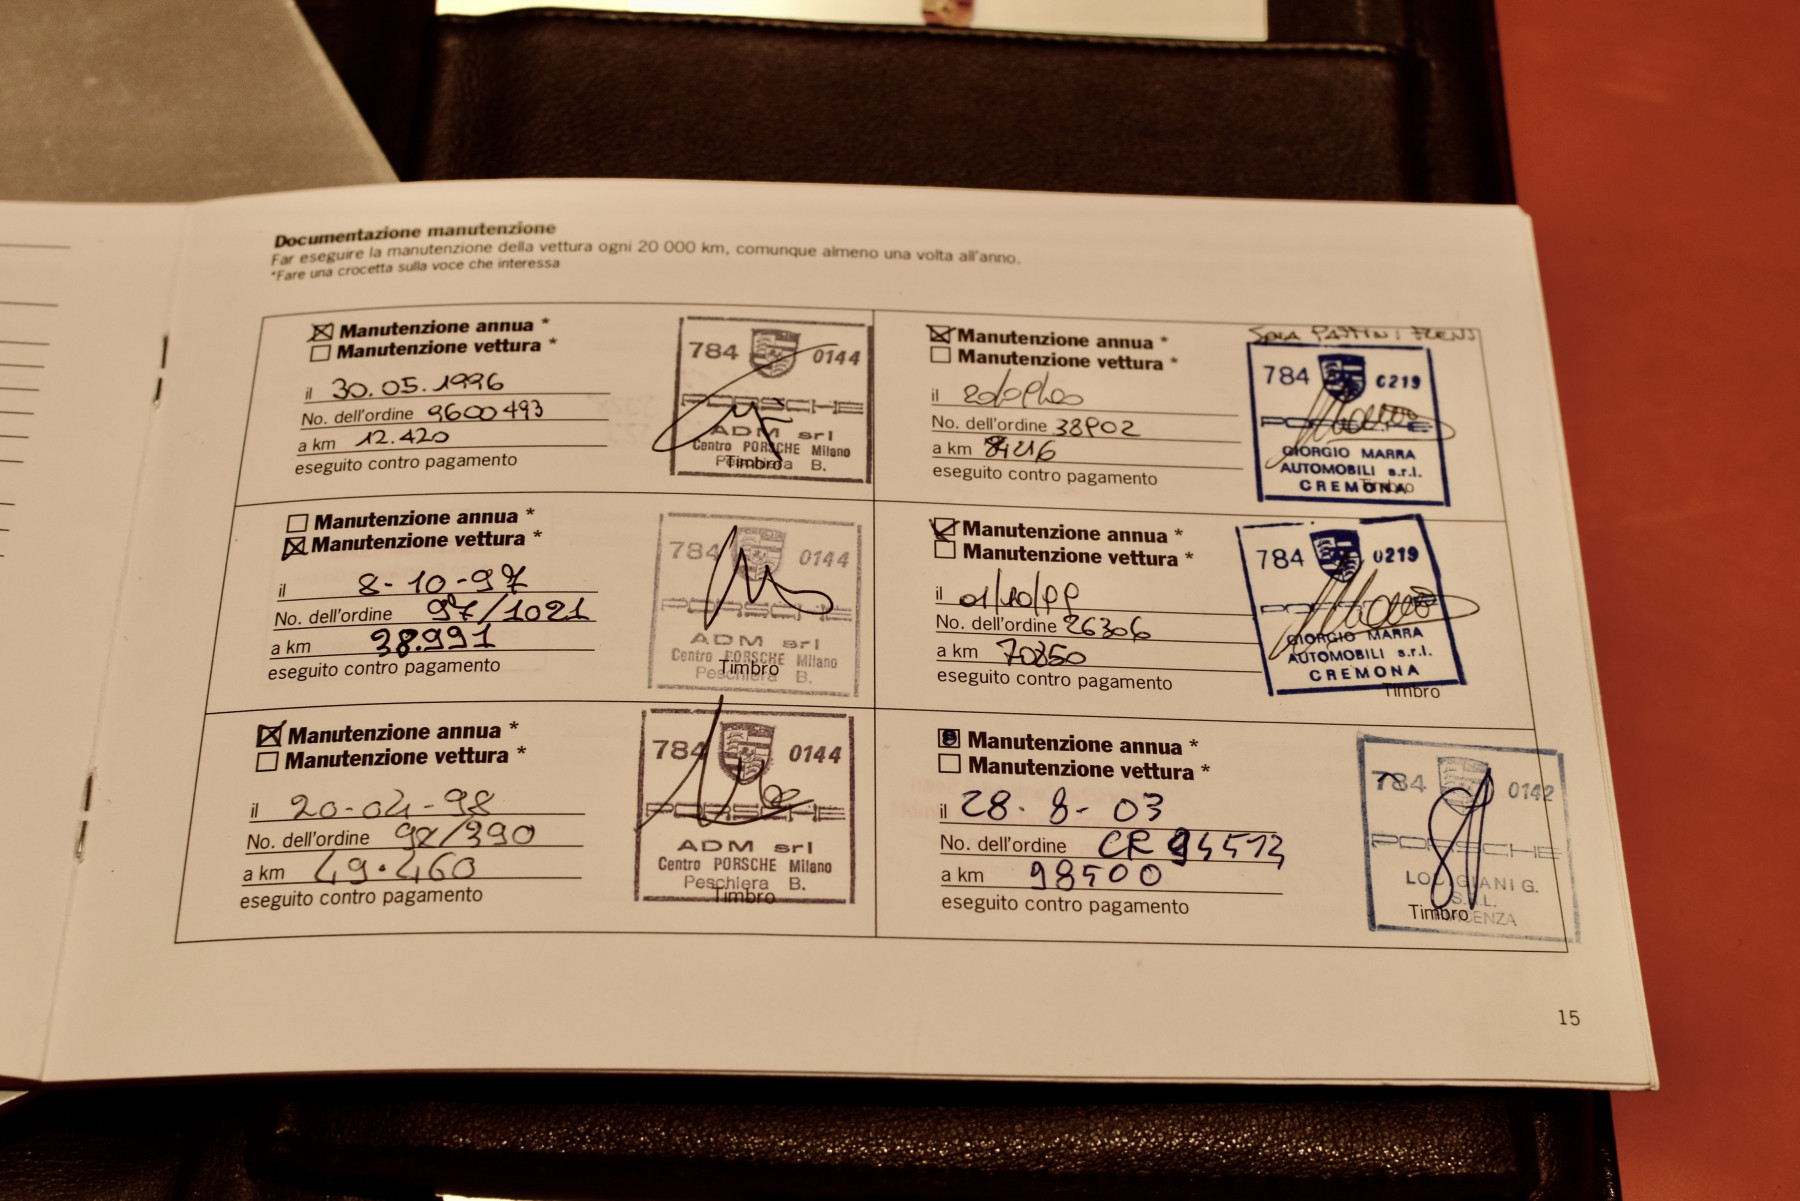 Documentazione manutenzione
Far eseguire la manutenzione della vettura ogni 20 000 km, comunque almeno una volta all'anno.
*Fare una crocetta sulla voce che interessa
Manutenzione annua *
Manutenzione vettura *
il 30.05.1996
No. dell'ordine 9600493
a km 12.420
eseguito contro pagamento
784 0144
PORSCHE
ADM srl
Centro PORSCHE Milano
Peschiera B.
Timbro
Manutenzione annua *
Manutenzione vettura *
il 8-10-97
No. dell'ordine 97/1021
a km 38.991
eseguito contro pagamento
784 0144
PORSCHE
ADM srl
Centro PORSCHE Milano
Peschiera B.
Timbro
Manutenzione annua *
Manutenzione vettura *
il 20-04-98
No. dell'ordine 98/390
a km 49.460
eseguito contro pagamento
784 0144
PORSCHE
ADM srl
Centro PORSCHE Milano
Peschiera B.
Timbro
Manutenzione annua *
Manutenzione vettura *
il
No. dell'ordine 38902
a km 84216
eseguito contro pagamento
784 0219
PORSCHE
GIORGIO MARRA
AUTOMOBILI s.r.l.
CREMONA
Timbro
Manutenzione annua *
Manutenzione vettura *
il 01/10/99
No. dell'ordine 26306
a km 70350
eseguito contro pagamento
784 0219
PORSCHE
GIORGIO MARRA
AUTOMOBILI s.r.l.
CREMONA
Timbro
Manutenzione annua *
Manutenzione vettura *
il 28-8-03
No. dell'ordine CR
a km 98500
eseguito contro pagamento
784 0142
PORSCHE
LODIGIANI G.
S.R.L.
PIACENZA
Timbro
15